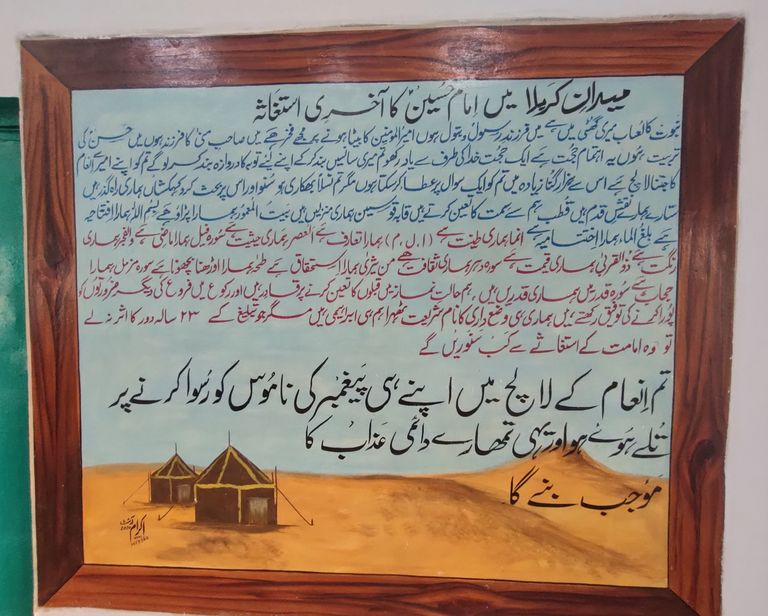 میدانِ کربلا میں امام حسینؑ کا آخری استغاثہ
نبوت کا لعاب میری گھٹی میں ہے میں فرزند رسولؐ و بتول ہوں امیر المومنین کا بیٹا ہونے پر مجھے فخر ہے میں صاحب منیٰ کا فرزند ہوں میں حسنؑ کی
تربیت ہوں یہ اتمام حجت ہے ایک حجت خدا کی طرف سے یاد رکھو تم میری سانسیں بند کر کے اپنے لیئے توبہ کا دروازہ بند کر لو گے تم کو اپنے امیر انعام
کا جتنا لالچ ہے اس سے ہزار گنا زیادہ میں تم کو ایک سوال پر عطا کر سکتا ہوں مگر تم نسلاً بھکاری ہو سنو اور اس پر بحث کرو کہکشاں ہماری راہ گذر ہیں
ستارے ہمارے نقش قدم ہیں قطب ہم سے سمت کا تعین کرتے ہیں قابہ قوسین ہماری منزلیں ہیں بیت المعمور ہمارا پڑاؤ ہے بسم اللہ ہمارا افتتاحیہ
ہے بلغ الماء ہمارا اختتامیہ ہے انما ہماری طینت ہے (ا، ل، م) ہمارا تعارف ہے العصر ہماری حیثیت ہے سورہ فیل ہمارا ماضی ہے والفجر ہماری
رنگت ہے ذوالقربیٰ ہماری قیمت ہے سورہ دہر ہماری ثقافت ہے من تزکیٰ ہمارا استحقاق ہے طٰہٰ ہمارا اوڑھنا بچھونا ہے سورہ مزمل ہمارا
حجاب ہے سورہ قدر میں ہماری قدریں ہیں ہم حالت نماز میں قبلوں کا تعین کرنے پر قادر ہیں اور رکوع میں فروع کی دیگر ضرورتوں کو
پورا کرنے کی توفیق رکھتے ہیں ہماری ہی وضع داری کا نام شریعت ٹھہرا ہم ہی ابراہیمی ہیں مگر جو تبلیغ کے ۲۳ سالہ دور کا اثر نہ لے
تو وہ امامت کے استغاثے سے کب سنوریں گے
تم انعام کے لالچ میں اپنے ہی پیغمبر کی ناموس کو رسوا کرنے پر
تُلے ہوئے ہو اور یہی تمھارے دائمی عذاب کا
مُوجب بنے گا
اکرام آرٹسٹ